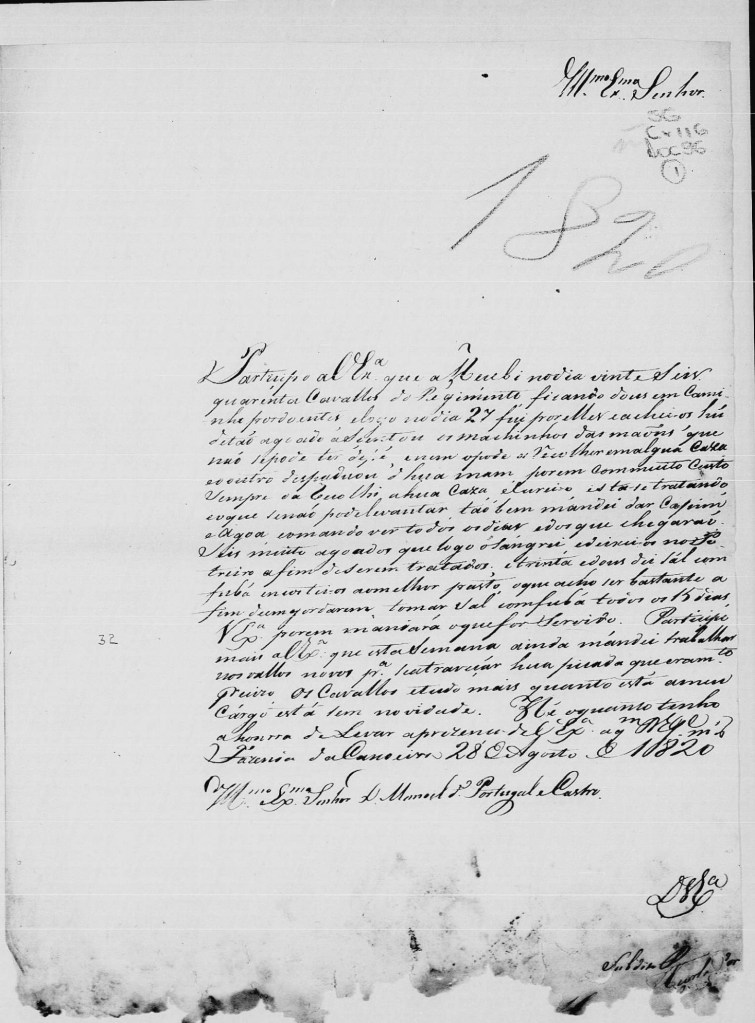 Ill.mo Ex.mo Senhor.
SG
Cx 116
Doc 36
1
1820
Participo a V Ex.ª que a Recebi no dia vinte Seis
quarenta Cavallos do Regimento ficando dous em Cami
nho por doentes, e logo no dia 27 fui por elles e achei-os hú
detão agoado os machinhos das maons, que
não se pode ter de pé, e nem o pode Recolher em algúa Caza
e o outro hua mam, porem Com muito Custo
Sempre o a hua Caza, esta se tratando
e o que se não pode Levantar tãobem mandei dar Capim
e Agoa, e o mando ver todos os dias, e dos que chegarão
Seis muito agoados que logo o Sangrei e deixei os no
treiro a fim de Serem tratados, e trinta e dous dei Sal com
fubá e os ao melhor pasto, o que acho ser bastante a
fim de emgordarem, tomar Sal com fubá todos os 15 dias
V Ex.ª porem mandará o que for Servido. Participo
mais a V Ex.ª que esta Semana ainda mandei trabalhar
nos vallos novos p.ª se atravecár hua picada que
Os Cavallos e tudo mais quanto está a meu
Cárgo está sem novidade. Hé o quanto tenho
a honrra de Levar a prezença de V Ex.ª a q.m
32
Fazenda da Canoeira 28 de Agosto de 1820
Ill.mo e Ex.mo Senhor D. Manoel de Portugal e Castro.
De V Ex.ª
Subdito